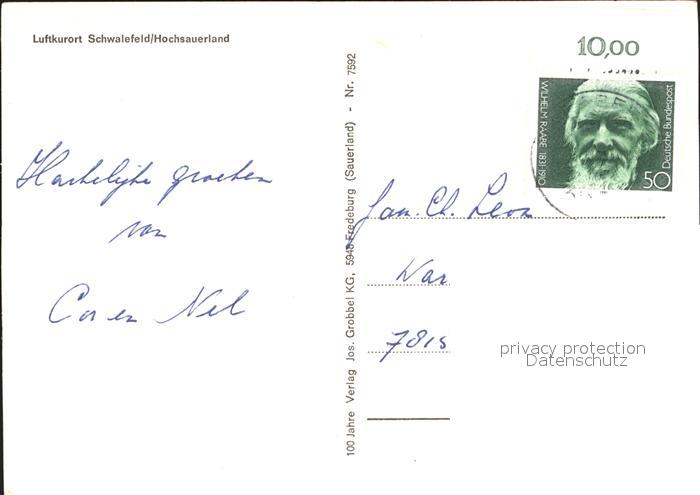 Luftkurort Schwalefeld/Hochsauerland
10,00
WILHELM RAABE 1831-1910
Deutsche Bundespost
50
Hartelijke groeten
van
Cor en Nel
Fam. Ch. Leon
7815
100 Jahre Verlag Jos. Grobbel KG, 5948 Fredeburg (Sauerland) - Nr. 7592
privacy protection
Datenschutz